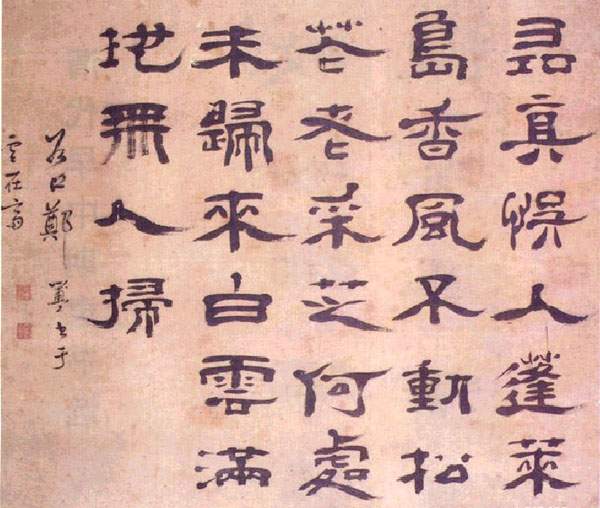 尋真悞入蓬萊
島香風不動松
花老采芝何處
未歸來白雲滿
地無人掃
谷口鄭簠書于
雲在齋